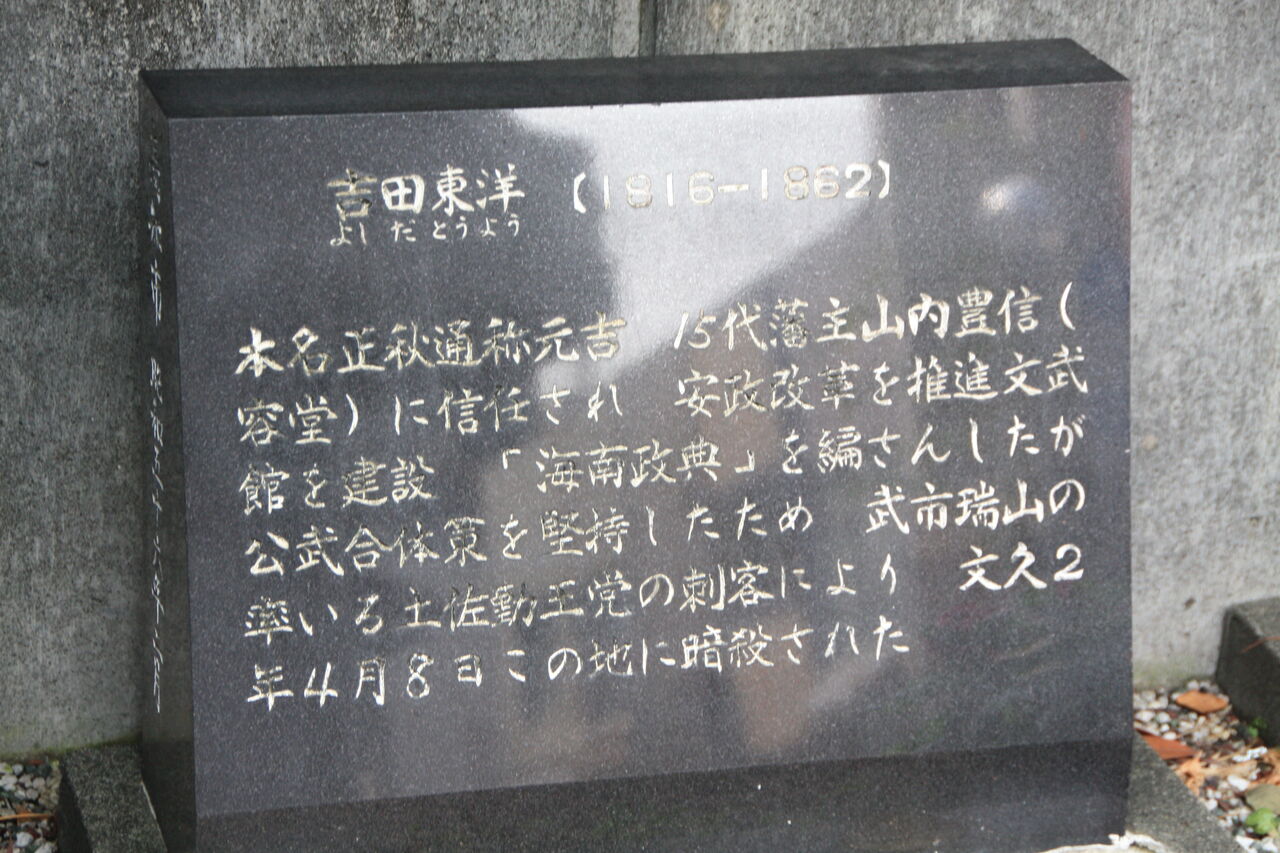 吉田東洋 (1816—1862)
よしだとうよう
本名正秋通称元吉 15代藩主山内豊信(
容堂)に信任され 安政改革を推進文武
館を建設 「海南政典」を編さんしたが
公武合体策を堅持したため 武市瑞山の
率いる土佐勤王党の刺客により 文久2
年4月8日この地に暗殺された